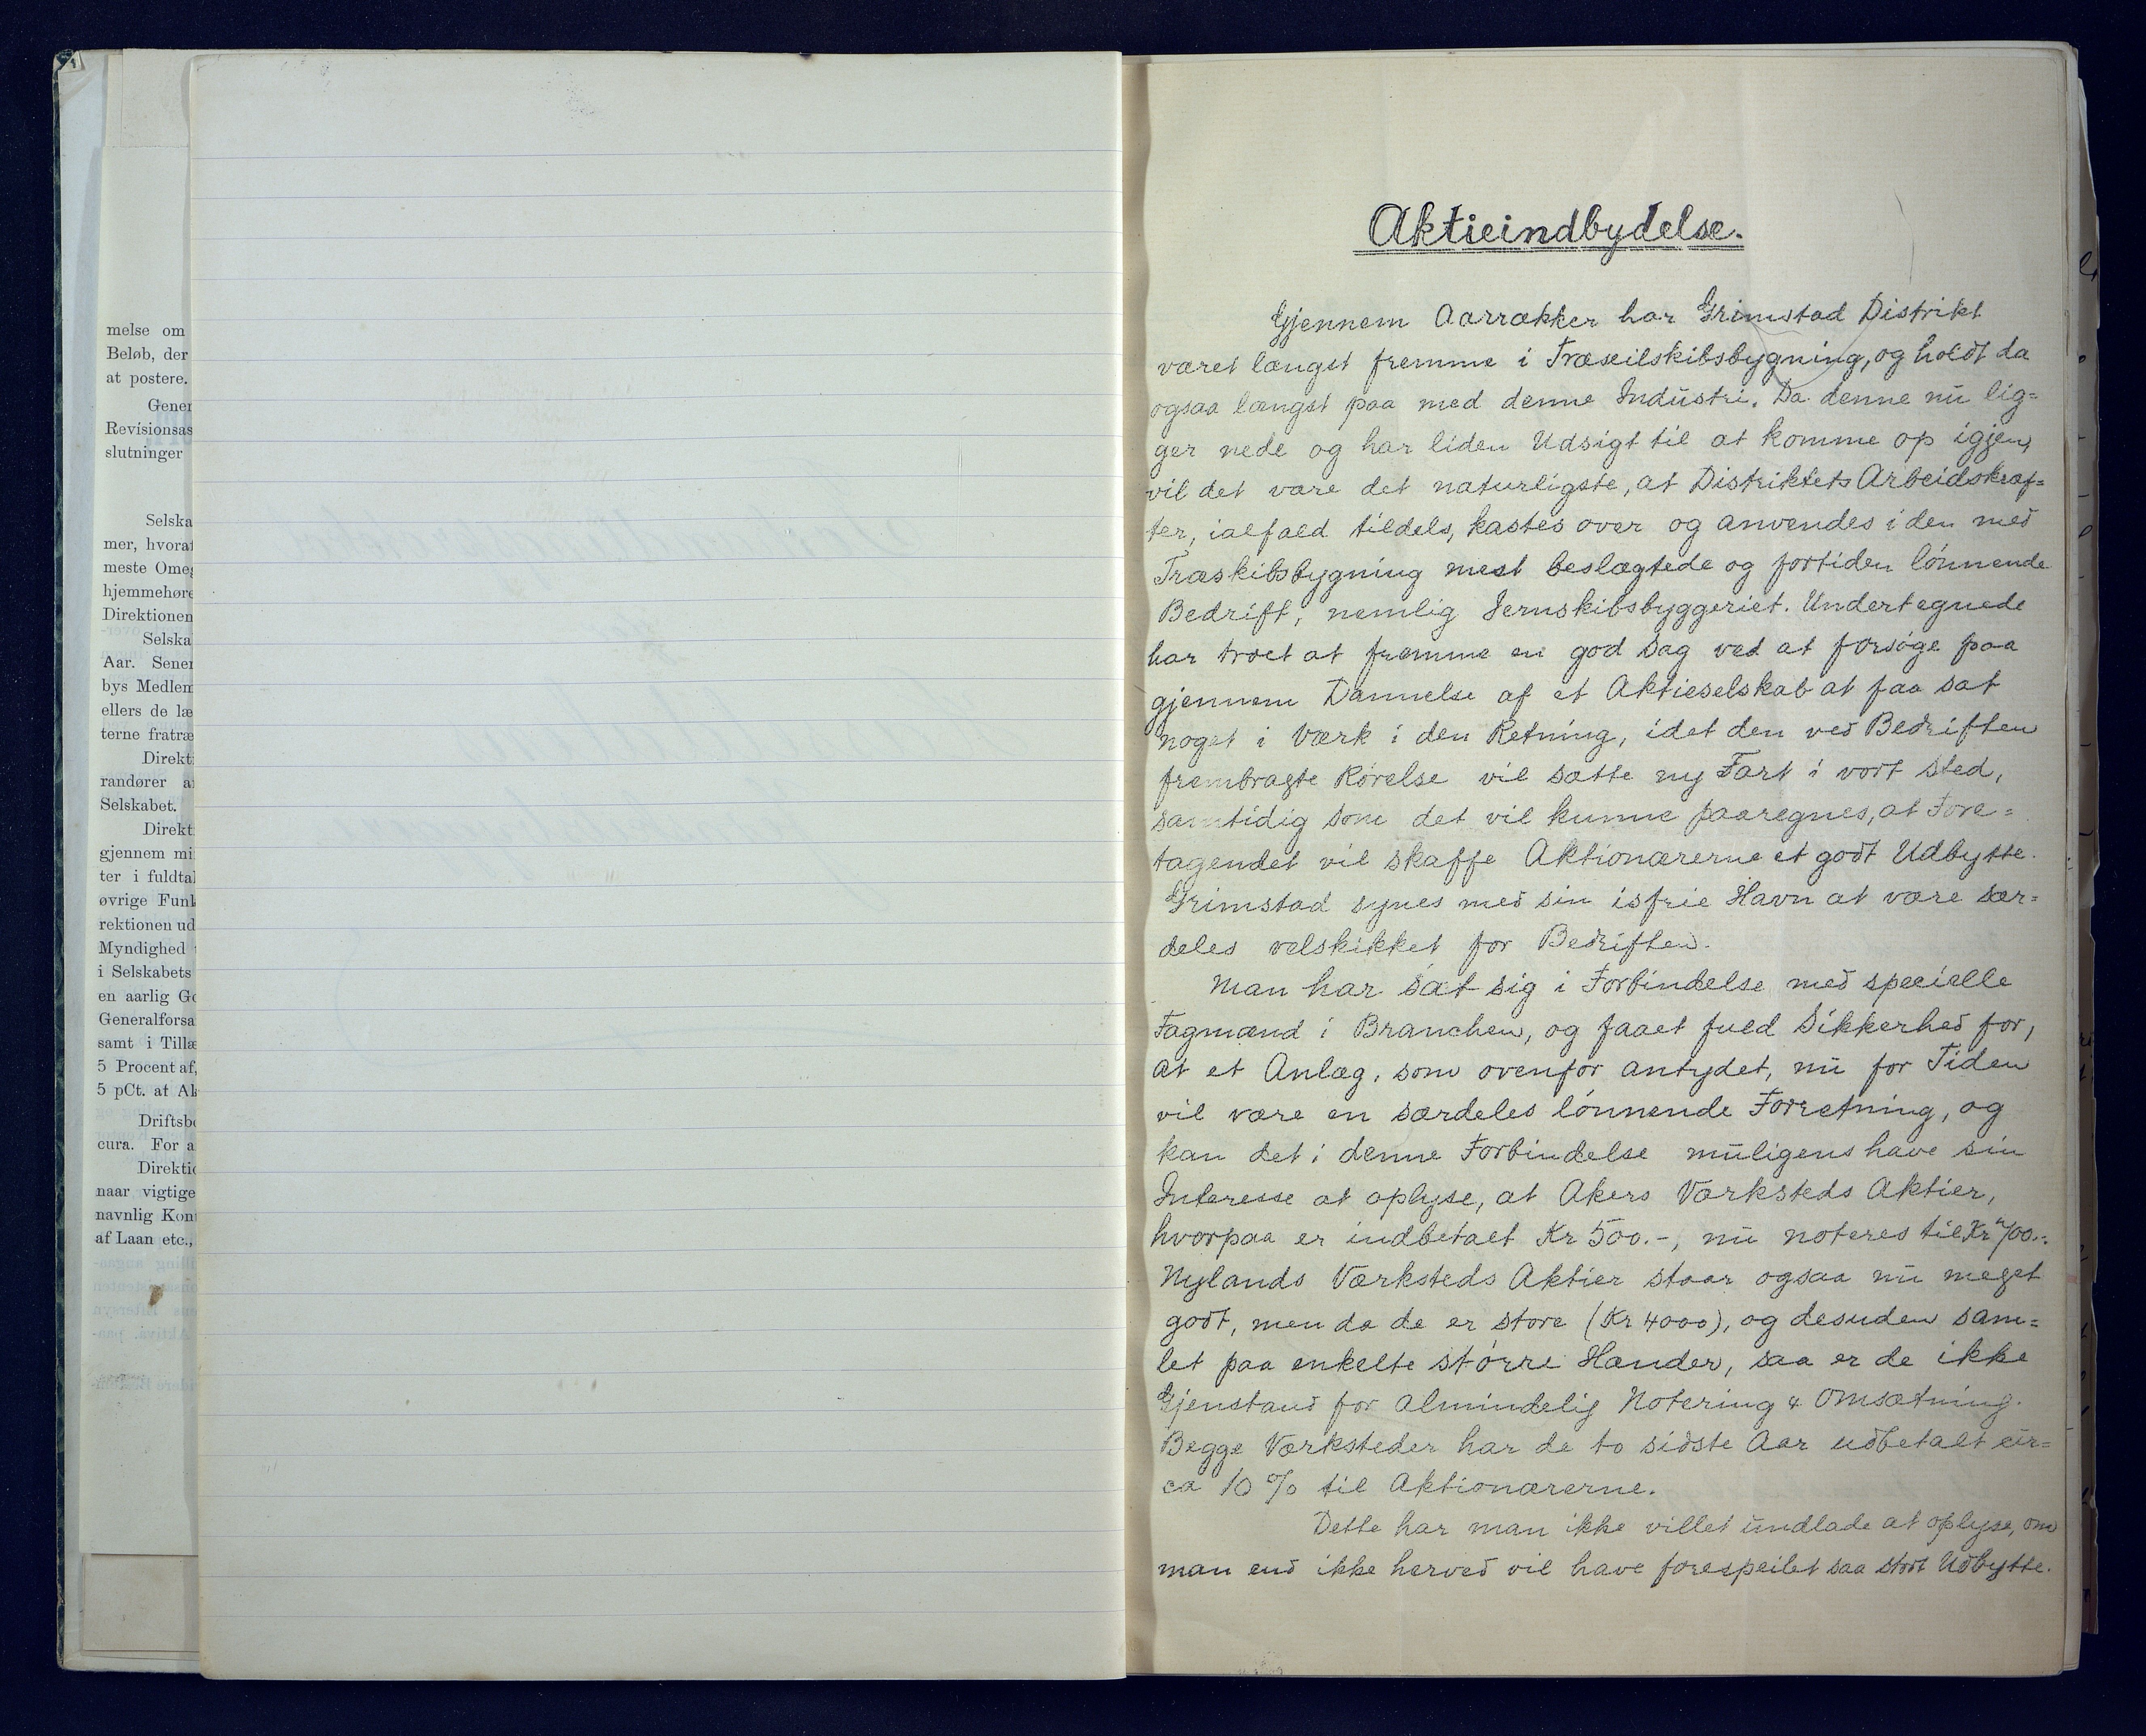 melse om
Beløb, der
at postere.
Gener
Revisionsas
slutninger
Selska
mer, hvoraf
meste Omeg
hjemmehøre
Direktionen
Selska
Aar. Sener
bys Medlem
ellers de læ
terne fratræ
Direkt
randører a
Selskabet.
Direkt
gjennem mi
ter i fuldtal
øvrige Funk
rektionen ud
Myndighed
i Selskabets
en aarlig Ge
Generalforsa
samt i Tillæ
5 Procent af,
5 pCt. at Ak
Driftsbe
cura. For a
Direktio
naar vigtige
navnlig Kont
af Laan etc.,
Aktieindbydelse.
Gjennem Aarrækker har Grimstad Distrikt
været længst fremme i Træseilskibsbygning, og holdt da
ogsaa længst paa med denne Industri. Da denne nu lig=
ger nede og har liden Udsigt til at komme op igjen,
vil det være det naturligste, at Distriktets Arbeidskræf=
ter, ialfald tildels, kastes over og anvendes i den med
Træskibsbygning mest beslægtede og fortiden lönnende
Bedrift, nemlig Jernskibsbyggeriet. Undertegnede
har troet at fremme en god Sag ved at forsöge paa
gjennem Dannelse af et Aktieselskab at faa sat
noget i Værk i den Retning, idet den ved Bedriften
frembragte Rörelse vil sætte ny Fart i vort Sted,
samtidig som det vil kunne paaregnes, at Fore=
tagendet vil skaffe Aktionærerne et godt Udbytte.
Grimstad synes med sin isfrie Havn at være sær=
deles velskikket for Bedriften.
Man har sat sig i Forbindelse med specielle
Fagmænd i Branchen, og faaet fuld Sikkerhed for,
at et Anlæg, som ovenfor antydet, nu for Tiden
vil være en særdeles lönnende Forretning, og
kan det i denne Forbindelse muligens have sin
Interesse at oplyse, at Akers Værksteds Aktier,
hvorpaa er indbetalt Kr 500.-, nu noteres til Kr 700.-.
Nylands Værksteds Aktier staar ogsaa nu meget
godt, men da de er store (Kr 4000), og desuden sam=
let paa enkelte större Hænder, saa er de ikke
Gjenstand for almindelig Notering & Omsætning.
Begge Værksteder har de to sidste Aar udbetalt cir=
ca 10 % til Aktionærerne.
Dette har man ikke villet undlade at oplyse, om
man end ikke herved vil have forespeilet saa stort Udbytte.